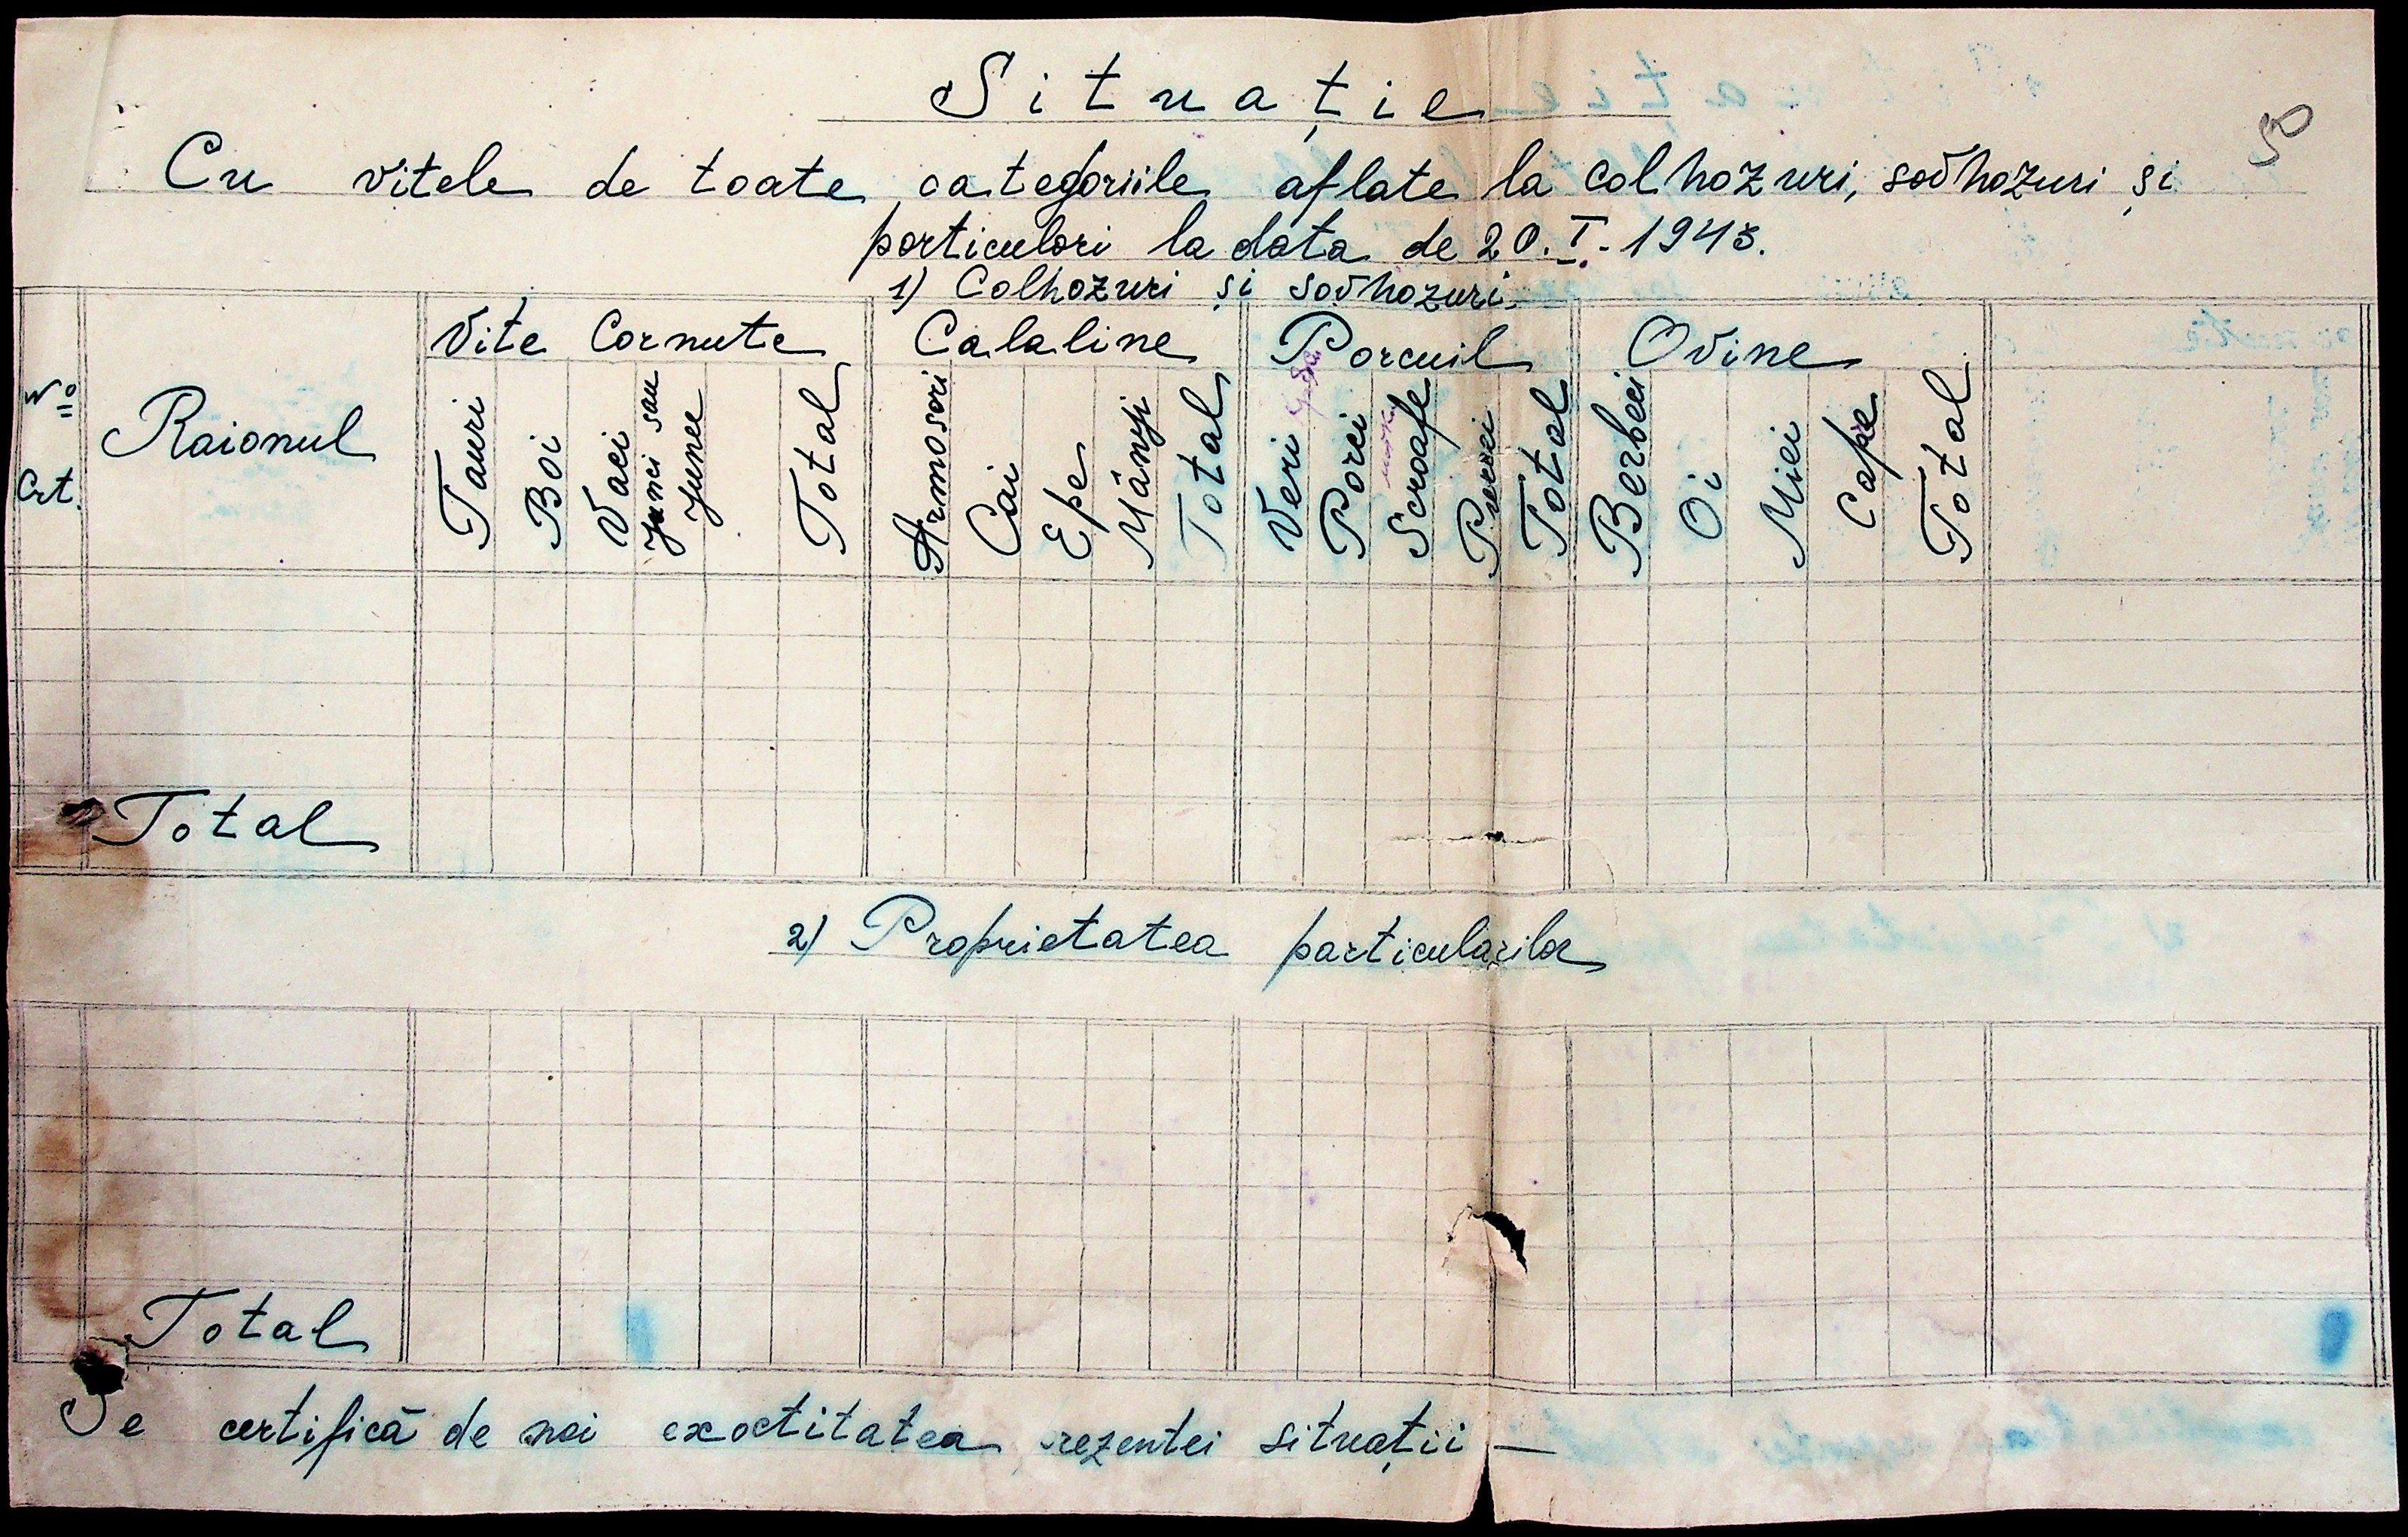 50
Situație
Cu vitele de toate categoriile aflate la colhozuri, sovhozuri și
particulari la data de 20.I.1943.
1) Colhozuri și sovhozuri.
Nº Crt.
Raionul
Vite Cornute
Tauri
Boi
Vaci
Junci sau
Junce
Total
Calaline
Armosori
Cai
Epe
Mânji
Total
Porcuil
Veri
Porci
Scroafe
Purcei
Total
Ovine
Berbeci
Oi
Miei
Capre
Total
Total
2) Proprietatea particularilor
Total
Se certifică de noi exactitatea rezentei situații —